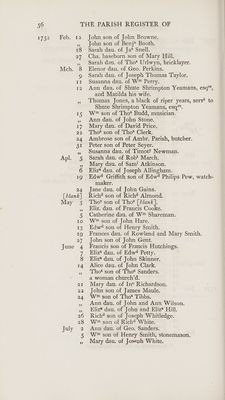 56 THE PARISH REGISTER OF
1752 Feb. 12 John son of John Browne.
„ John son of Benjn Booth.
18 Sarah dau. of Jas Snell.
27 Cha. baseborn son of Mary Hill.
„ Sarah dau. of Thos Urlwyn, bricklayer.
Mch. 8 Elenor dau. of Geo. Perkins.
9 Sarah dau. of Joseph Thomas Taylor.
11 Susanna dau. of Wm Perry.
12 Ann dau. of Shute Shrimpton Yeamans, esqre,
and Matilda his wife.
„ Thomas Jones, a black of riper years, servt to
Shute Shrimpton Yeamans, esqre.
15 Wm son of Thos Budd, musician.
„ Ann dau. of John Stone.
17 Mary dau. of David Price.
22 Thos son of Thos Clerk.
24 Ambrose son of Ambr. Parish, butcher.
31 Peter son of Peter Soyer.
„ Susanna dau. of Timoy Newman.
Apl. 5 Sarah dau. of Robt March.
„ Mary dau. of Saml Atkinson.
6 Elizh dau. of Joseph Allingham.
19 Edwd Griffith son of Edwd Philips Pew, watch-
maker.
24 Jane dau. of John Gains.
[blank] Richd son of Richd Almond.
May 3 Thos son of Thos [blank].
„ Eliz. dau. of Francis Cooke.
5 Catherine dau. of Wm Shareman.
10 Wm son of John Hare.
13 Edwd son of Henry Smith.
19 Frances dau. of Rowland and Mary Smith.
27 John son of John Gent.
June 4 Francis son of Francis Hutchings.
7 Elizh dau. of Edwd Petty.
8 Elizh dau. of John Skinner.
14 Alice dau. of John Clark.
„ Thos son of Thos Sanders.
a woman church'd.
21 Mary dau. of Jno Richardson.
22 John son of James Maule.
24 Wm son of Thos Tibbs.
„ Ann dau. of John and Ann Wilson.
„ Elizh dau. of John and Elizh Hill.
26 Richd son of Joseph Whitledge.
28 Wm son of Richd White.
July 2 Ann dau. of Geo. Sanders.
5 Wm son of Henry Smith, stonemason.
„ Mary dau. of Joseph White.